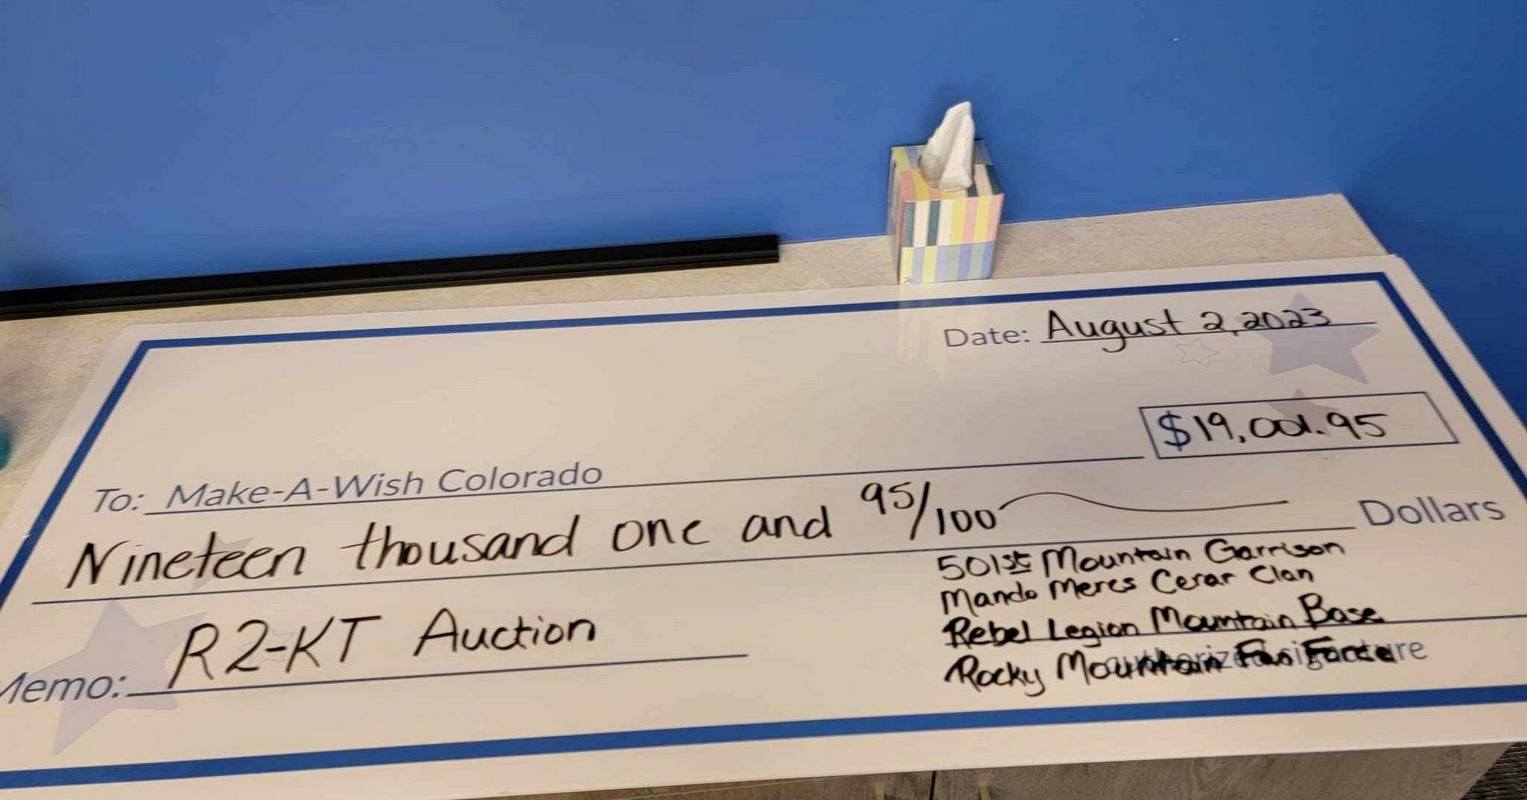 Date: August 2, 2023
$19,001.95
To: Make-A-Wish Colorado
Nineteen thousand one and 95/100 Dollars
501st Mountain Garrison
Mando Mercs Cerar Clan
Rebel Legion Mountain Base
Rocky Mountain Fan Force
authorized signature
Memo: R2-KT Auction